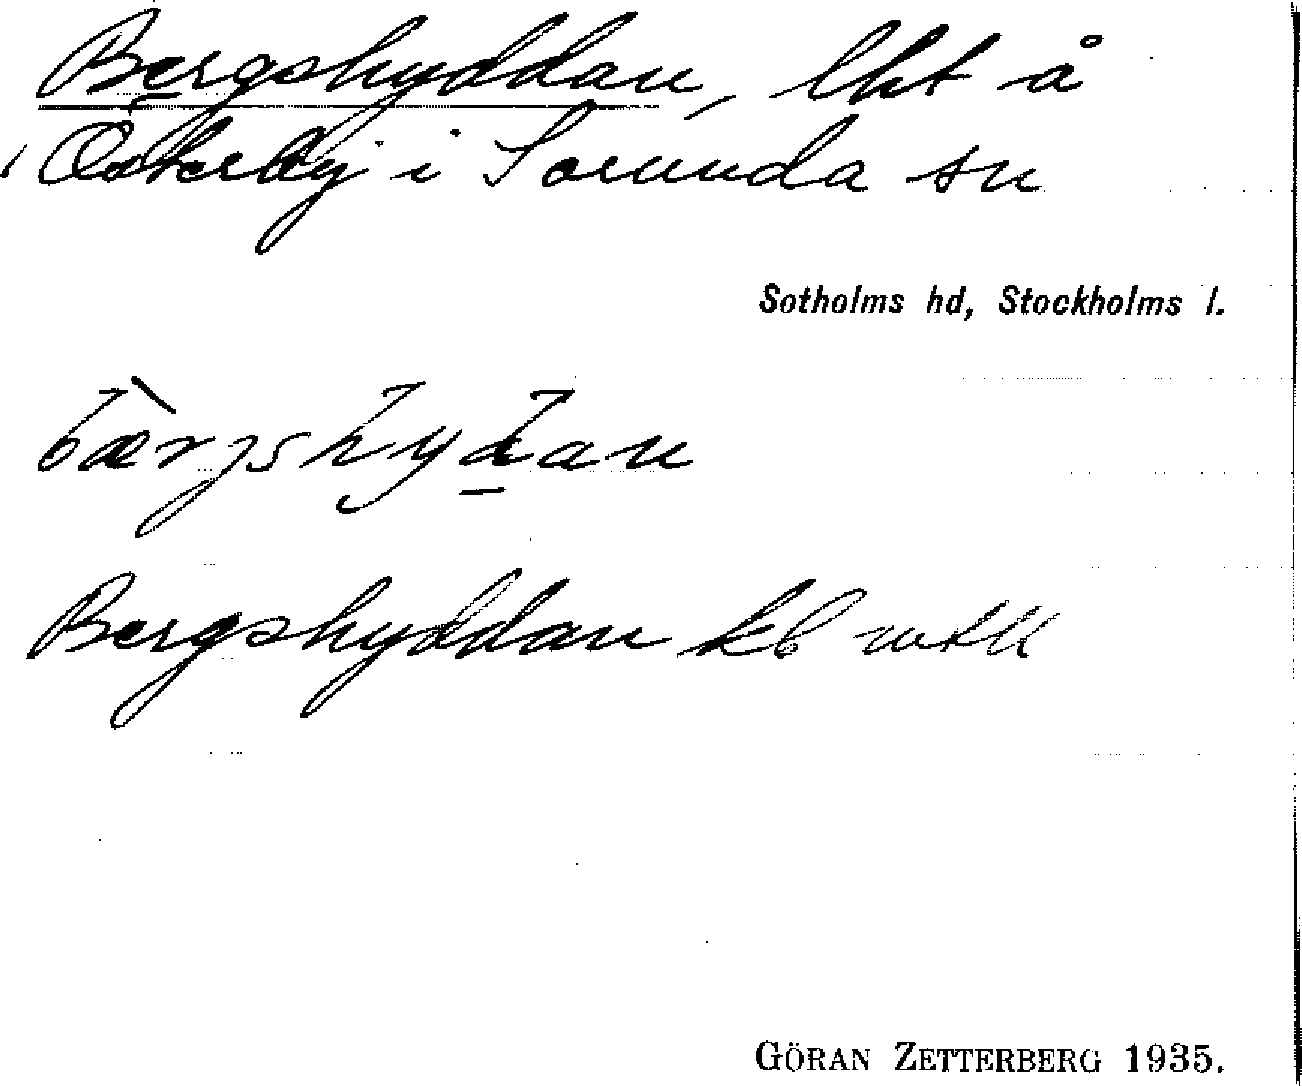 Bergshyddan, lht å
Österby i Sorunda sn
Sotholms hd, Stockholms l.
bær̀jshydan
Bergshyddan kb
GÖRAN ZETTERBERG 1935.